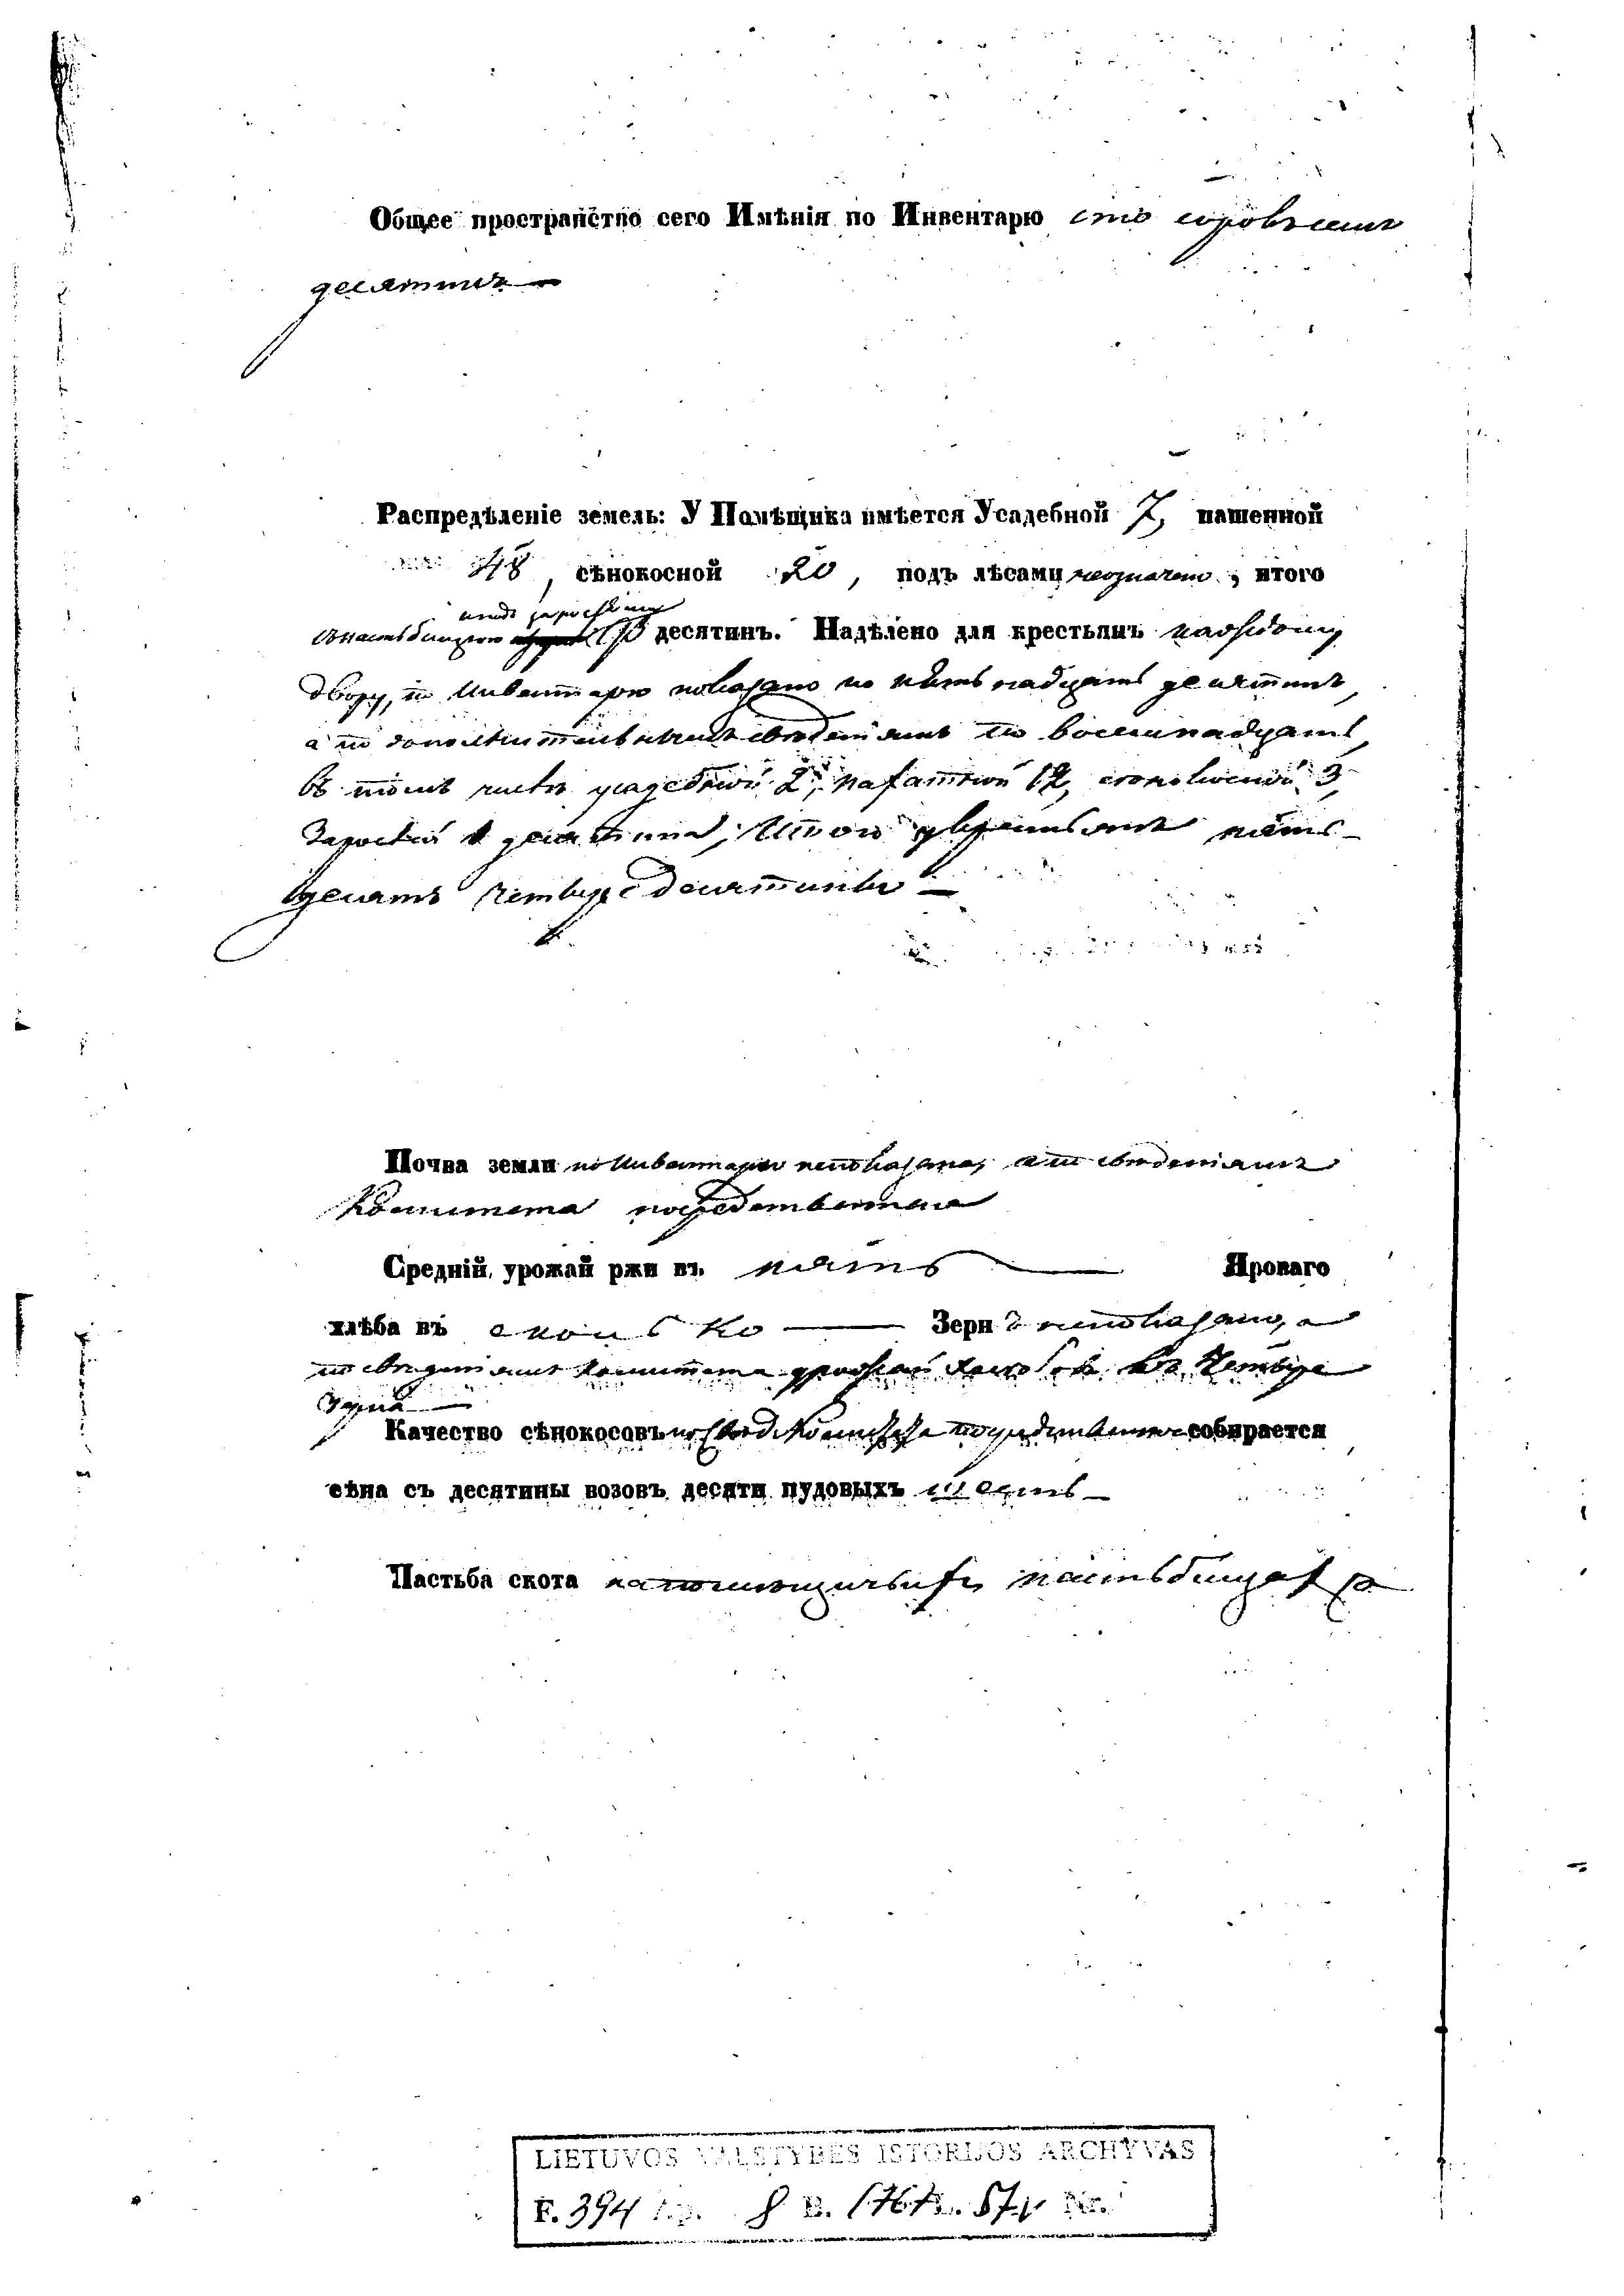 Общее пространство сего Имѣнія по Инвентарю сто сорокъ семь
десятинъ —
Распредѣленіе земель: У Помѣщика имѣется Усадебной 7, пашенной
48, сѣнокосной 20, подъ лѣсами неозначено, итого
подъ зарослями
десятинъ. Надѣлено для крестьянъ каждому
двору, по Инвентарю показано по пятьнадцать десятинъ,
а по дополнительнымъ свѣденіямъ по восемнадцать,
въ томъ числѣ усадебной 2, пахатной 12, сѣнокосной 3,
зарослей 1 десятина, Итого крестьянъ пять-
десятъ четыре десятины —
Почва земли по Инвентарю непоказана, а по свѣденіямъ
Комитета посредственная
Средній урожай ржи въ пять — Яроваго
хлѣба въ сколько — Зерн ъ непоказано, а
по свѣденіямъ Комитета урожай хлѣбовъ въ четыре
зерна —
Качество сѣнокосовъ по свѣд Комитета посредственное собирается
сѣна съ десятины возовъ десяти пудовыхъ шесть —
Пастьба скота на помѣщичьихъ пастьбищахъ
LIETUVOS VALSTYBĖS ISTORIJOS ARCHYVAS
F. 394 Ap. 8 B. 1767 L. 57v Nr.